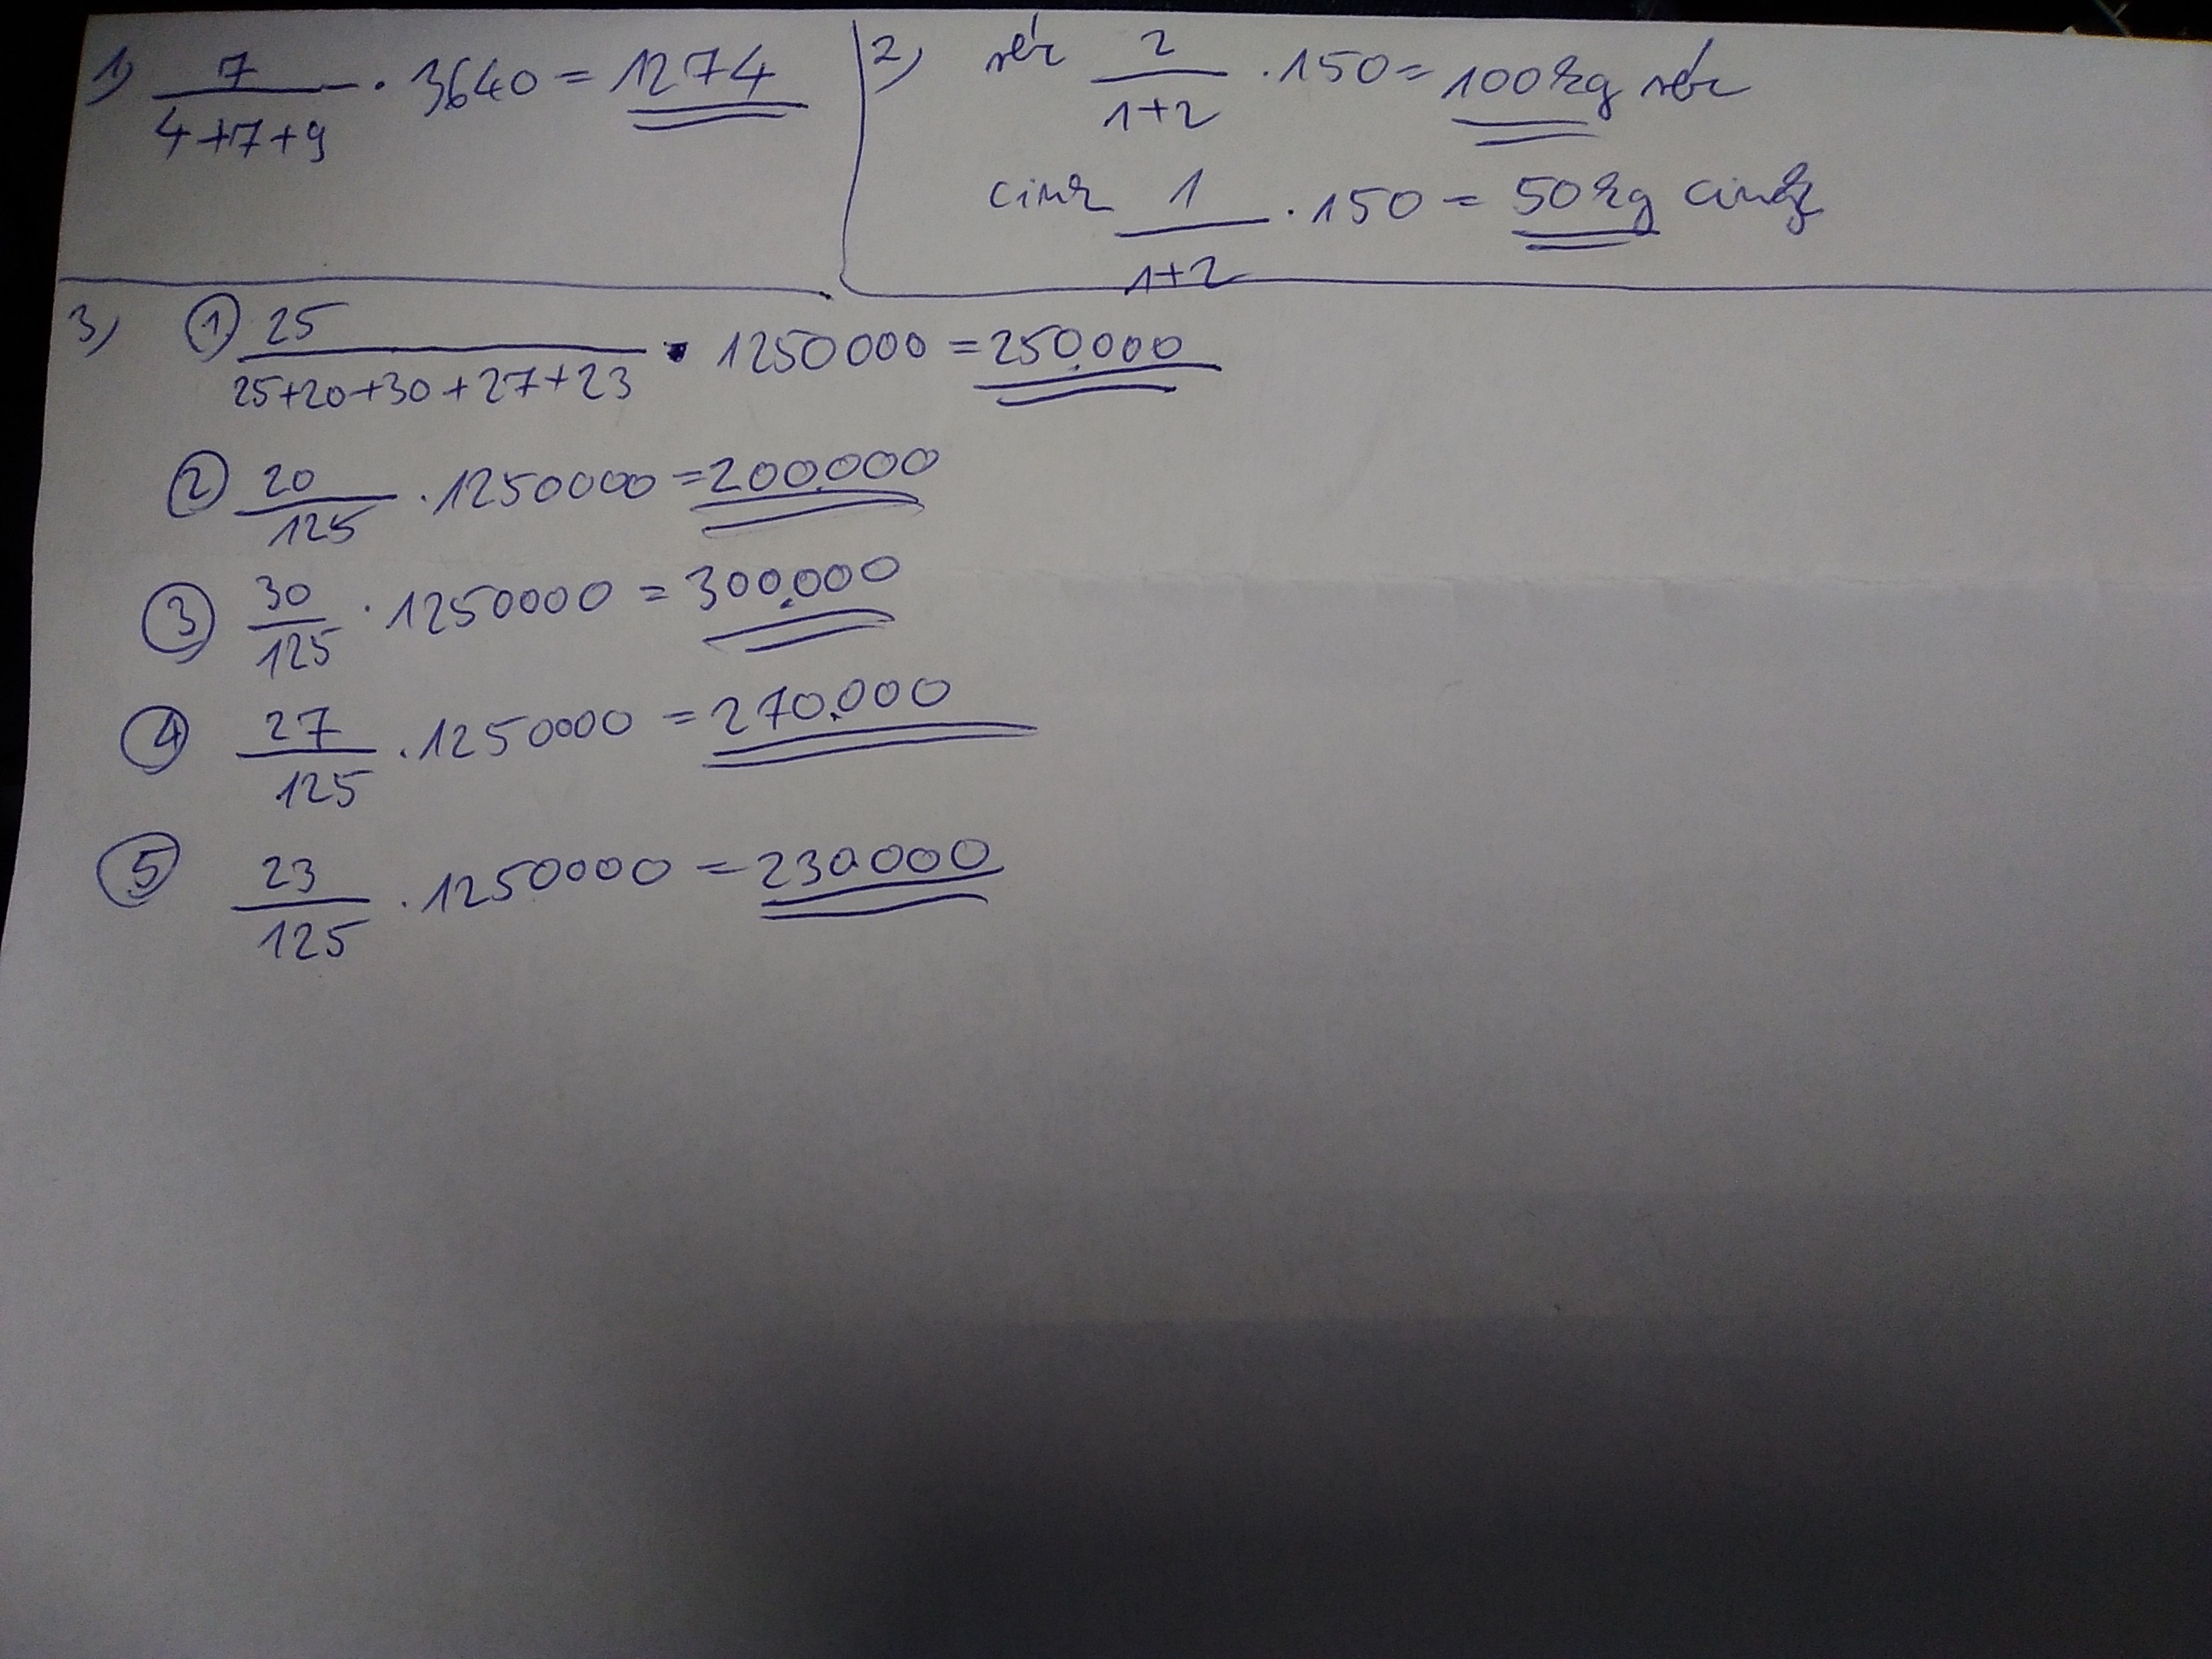 1) 7/(4+7+9) · 3640 = 1274
2) réz 2/(1+2) · 150 = 100 kg réz
cink 1/(1+2) · 150 = 50 kg cink
3) ① 25/(25+20+30+27+23) · 1250000 = 250.000
② 20/125 · 1250000 = 200.000
③ 30/125 · 1250000 = 300.000
④ 27/125 · 1250000 = 270.000
⑤ 23/125 · 1250000 = 230000